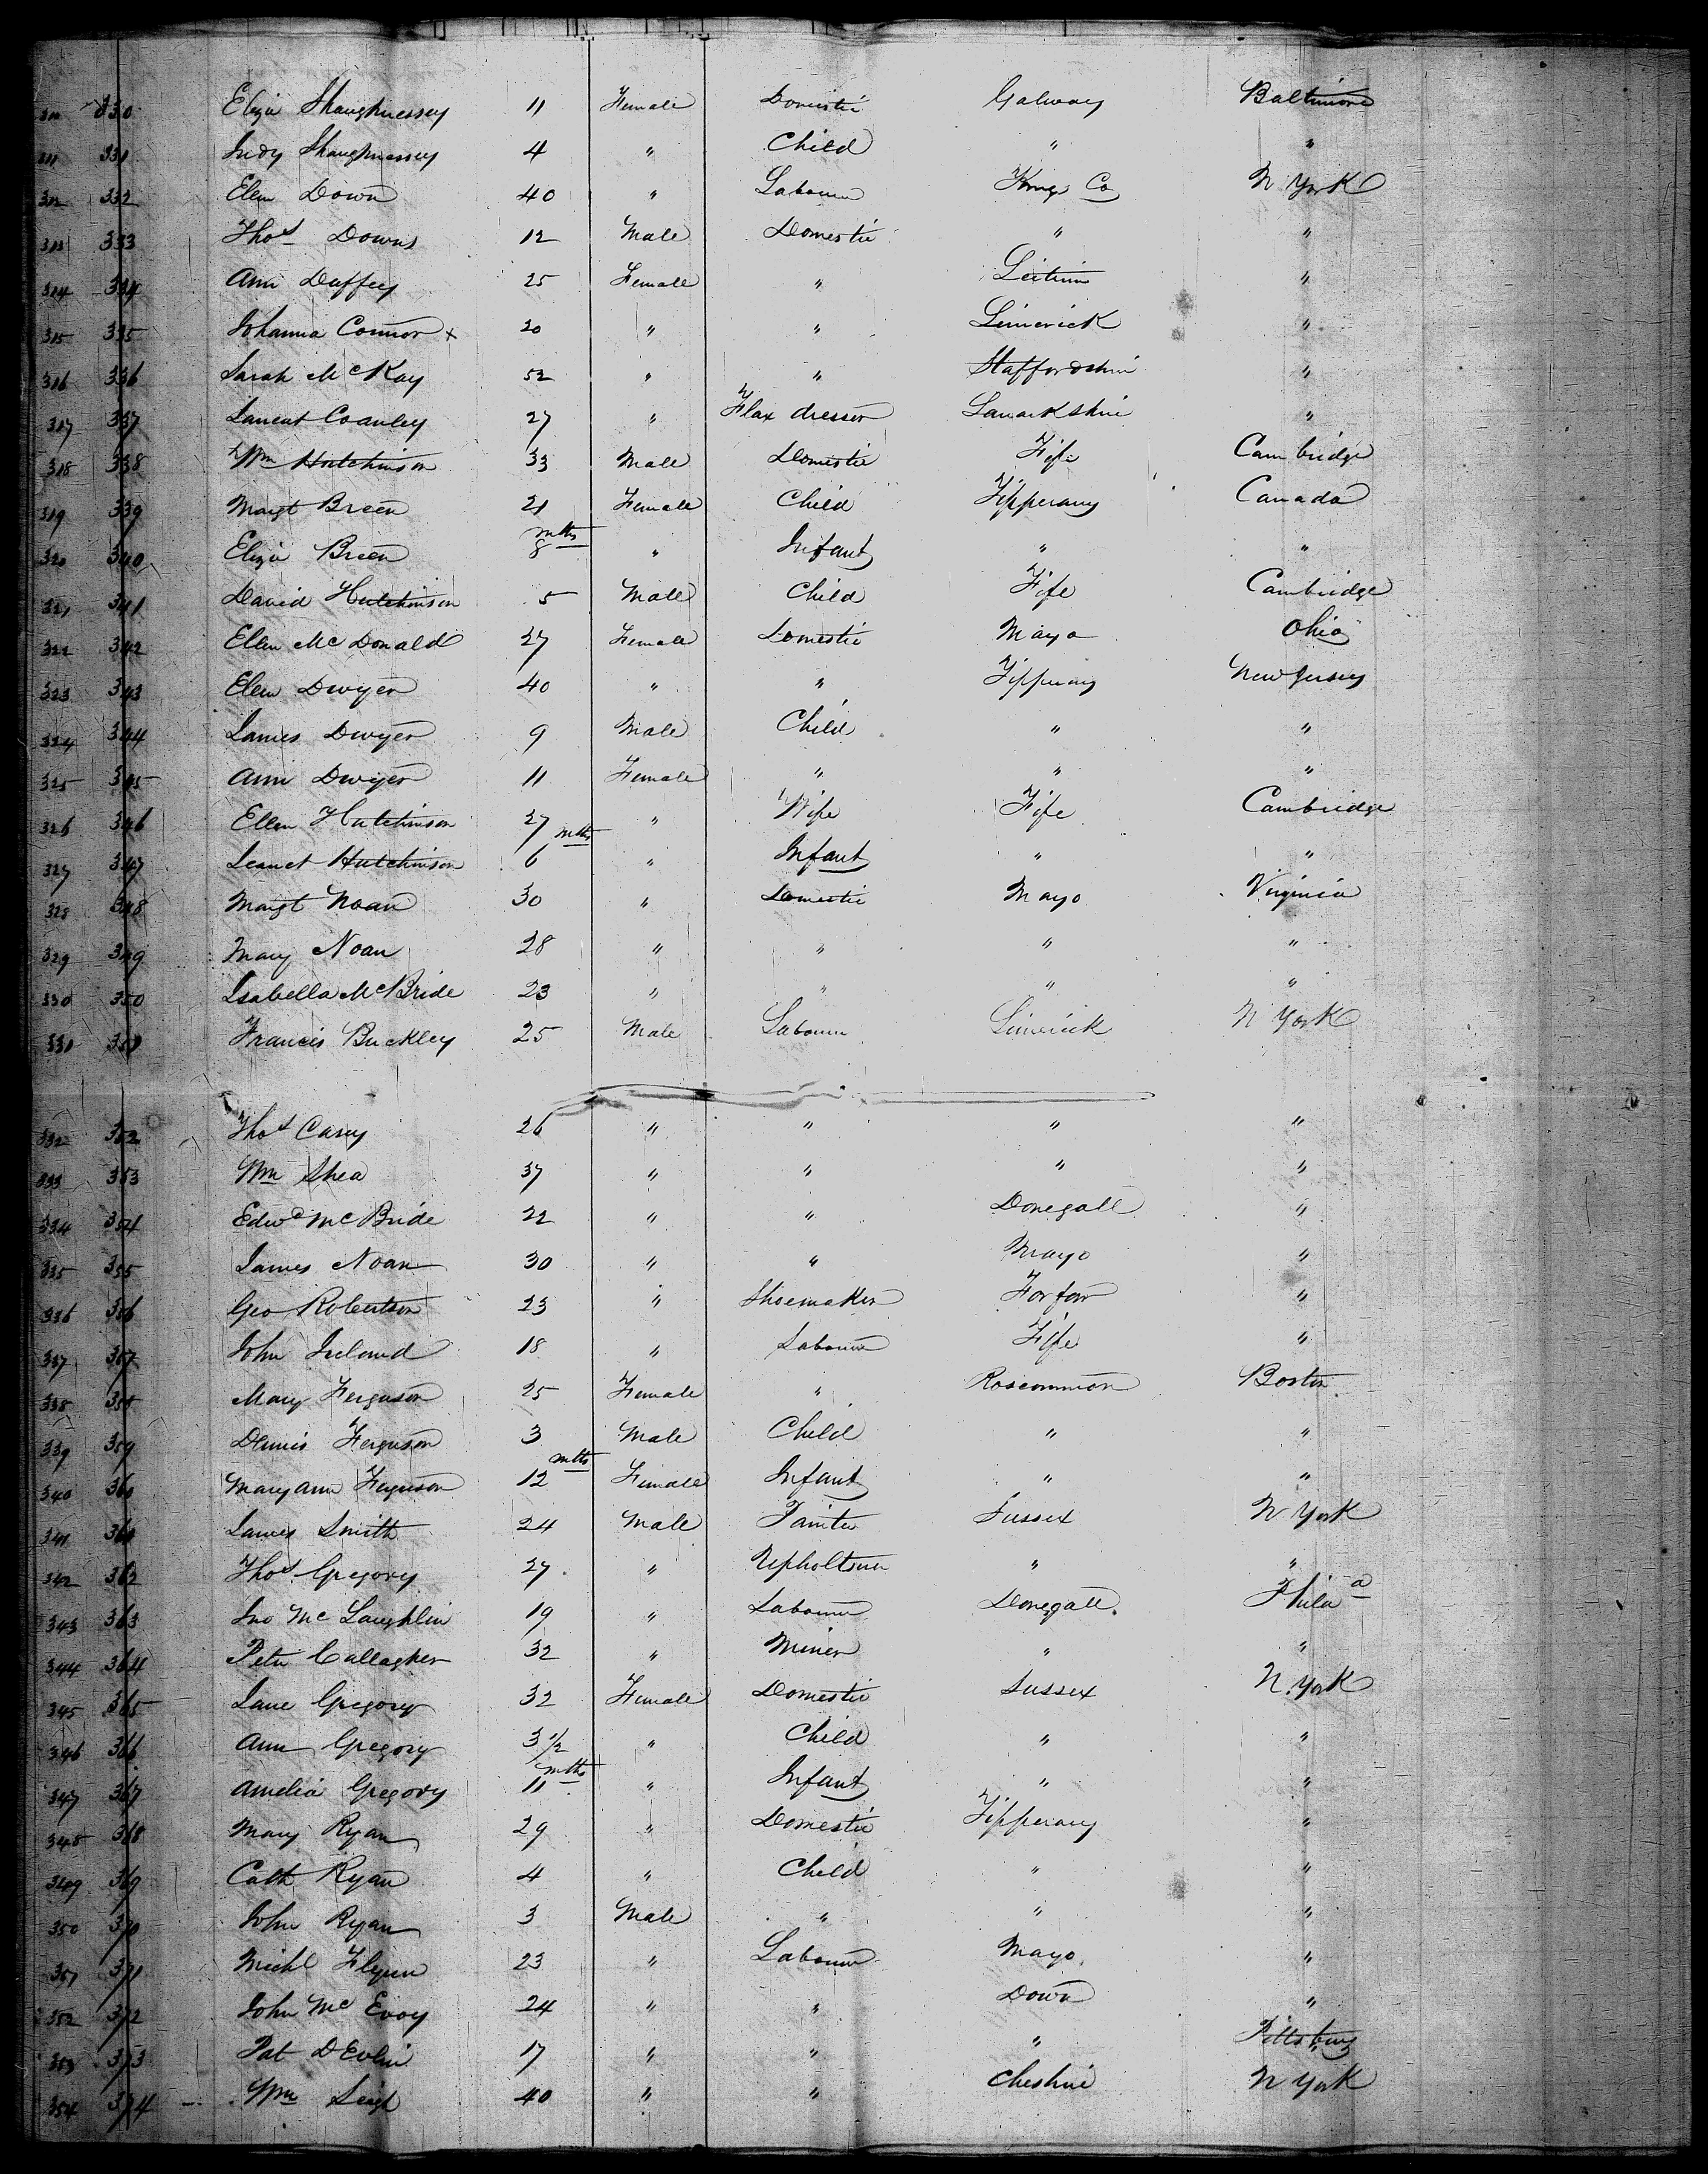 310 330 Eliza Shaughnessy 11 Female Domestic Galway Baltimore
311 331 Judy Shaughnessy 4 " Child " "
312 332 Elen Down 40 " Labourer Kings Co N York
313 333 Thos Downs 12 Male Domestic " "
314 334 Ann Duffey 25 Female " Leitrim "
315 335 Johanna Connor x 20 " " Limerick "
316 336 Sarah McKay 52 " " Staffordshire "
317 337 Coanley 27 " Flax dresser Lanarkshire "
318 338 Wm Hutchinson 33 Male Domestic Fife Cambridge
319 339 Margt Breen 21 Female Child Tipperary Canada
320 340 Eliza Breen 8 mths " Infant " "
321 341 David Hutchinson 5 Male Child Fife Cambridge
322 342 Ellen McDonald 27 Female Domestic Mayo Ohio
323 343 Elen Dwyer 40 " " Tipperary New Jersey
324 344 James Dwyer 9 Male Child " "
325 345 Ann Dwyer 11 Female " " "
326 346 Ellen Hutchinson 27 " Wife Fife Cambridge
327 347 Jeanet Hutchinson 6 mths " Infant " "
328 348 Margt Noan 30 " Domestic Mayo Virginia
329 349 Mary Noan 28 " " " "
330 350 Isabella McBride 23 " " " "
331 351 Francis Buckley 25 Male Labourer Limerick N York
332 352 Thos Casey 26 " " " "
333 353 Wm Shea 37 " " " "
334 354 Edwd McBride 22 " " Donegall "
335 355 James Noan 30 " " Mayo "
336 356 Geo Robertson 23 " Shoemaker Forfar "
337 357 John Ireland 18 " Labourer Fife "
338 358 Mary Ferguson 25 Female " Roscommon Boston
339 359 Dennis Ferguson 3 Male Child " "
340 360 Mary Ann Ferguson 12 mths Female Infant " "
341 361 James Smith 24 Male Painter Sussex N York
342 362 Thos Gregory 27 " Upholsterer " "
343 363 Jno McLaughlin 19 " Labourer Donegall Phila
344 364 Peter Gallagher 32 " Miner " "
345 365 Jane Gregory 32 Female Domestic Sussex N. York
346 366 Ann Gregory 3 1/2 " Child " "
347 367 Amelia Gregory 11 mths " Infant " "
348 368 Mary Ryan 29 " Domestic Tipperary "
349 369 Cath Ryan 4 " Child " "
350 370 John Ryan 3 Male " " "
351 371 Michl Flynn 23 " Labourer Mayo "
352 372 John McEvoy 24 " " Down "
353 373 Pat DEvlin 17 " " " Pittsburg
354 374 Wm Leigh 40 " " Cheshire N York